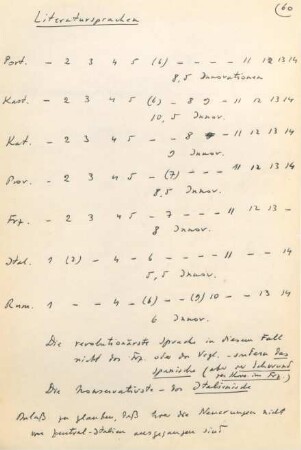 (60
Literatursprachen
Port. - 2 3 4 5 (6) - - - - 11 12 13 14
8,5 Innovationen
Kast. - 2 3 4 5 (6) - 8 9 - 11 12 13 14
10,5 Innov.
Kat. - 2 3 4 5 - - 8 - 11 12 13 14
9 Innov.
Prov. - 2 3 4 5 - (7) - - - 11 12 13 14
8,5 Innov.
Frz. - 2 3 4 5 - 7 - - - 11 12 13 -
8 Innov.
Ital. 1 (2) - 4 - 6 - - - - 11 - - 14
5,5 Innov.
Rum. 1 - - 4 - (6) - - (9) 10 - - 13 14
6 Innov.
Die revolutionärste Sprache in diesem Fall
nicht das Frz. oder der Vegl. - sondern das
Spanische (aber
Die Konservativste - das Italienische
Anlaß zu glauben, daß hier die Neuerungen nicht
von Zentral-Italien ausgegangen sind